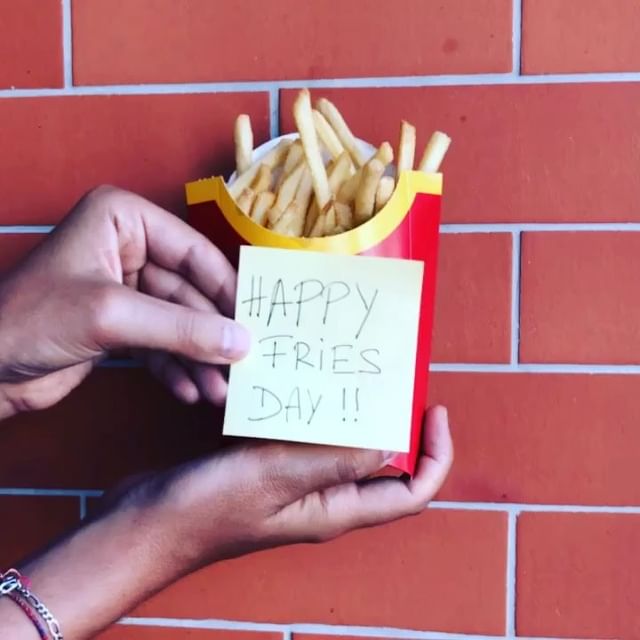 HAPPY
FRIES
DAY !!